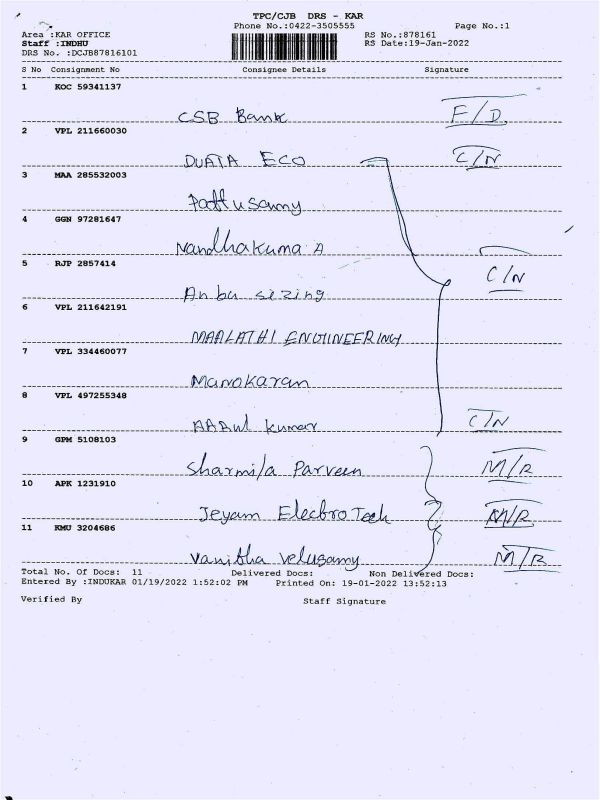 TPC/CJB DRS - KAR
Phone No.:0422-3505555 Page No.:1
Area :KAR OFFICE RS No.:878161
Staff :INDHU RS Date:19-Jan-2022
DRS No. :DCJB87816101
S No Consignment No Consignee Details Signature
1 KOC 59341137
CSB Bank F/D
2 VPL 211660030
DUATA ECO C/N
3 MAA 285532003
Pattusamy
4 GGN 97281647
Nandhakuma A
5 RJP 2857414 C/N
Anbu sizing
6 VPL 211642191
MAALATHI ENGINEERING
7 VPL 334460077
Manokaran
8 VPL 497255348
AAAul kumar C/N
9 GPM 5108103
Sharmila Parveen M/R
10 APK 1231910
Jeyam Electro Tech M/R
11 KMU 3204686
Vanitha Velusamy M/R
Total No. Of Docs: 11 Delivered Docs: Non Delivered Docs:
Entered By :INDUKAR 01/19/2022 1:52:02 PM Printed On: 19-01-2022 13:52:13
Verified By Staff Signature